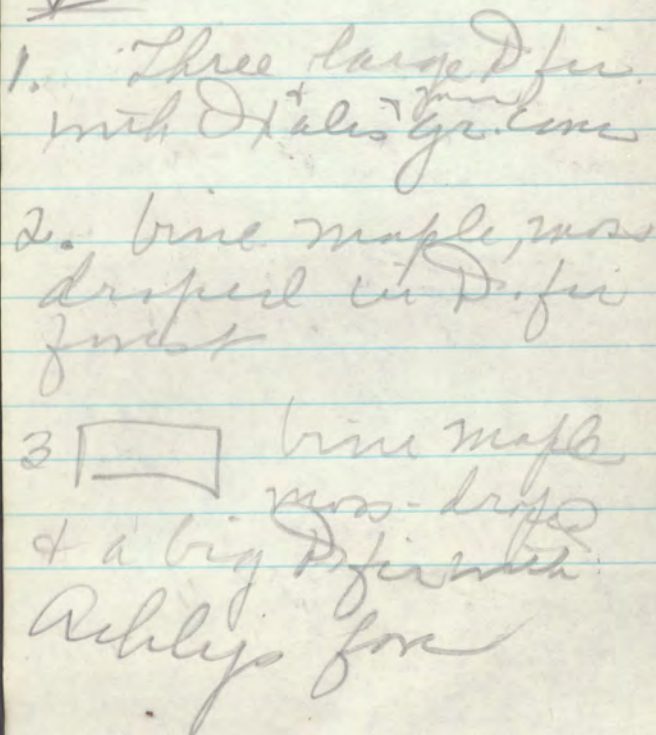 1. Three large D. fir
with Oxalis gr. cover
2. Vine maple, moss
draped in D. fir
forest
3 Vine maple
moss-draped
& a big D fir with